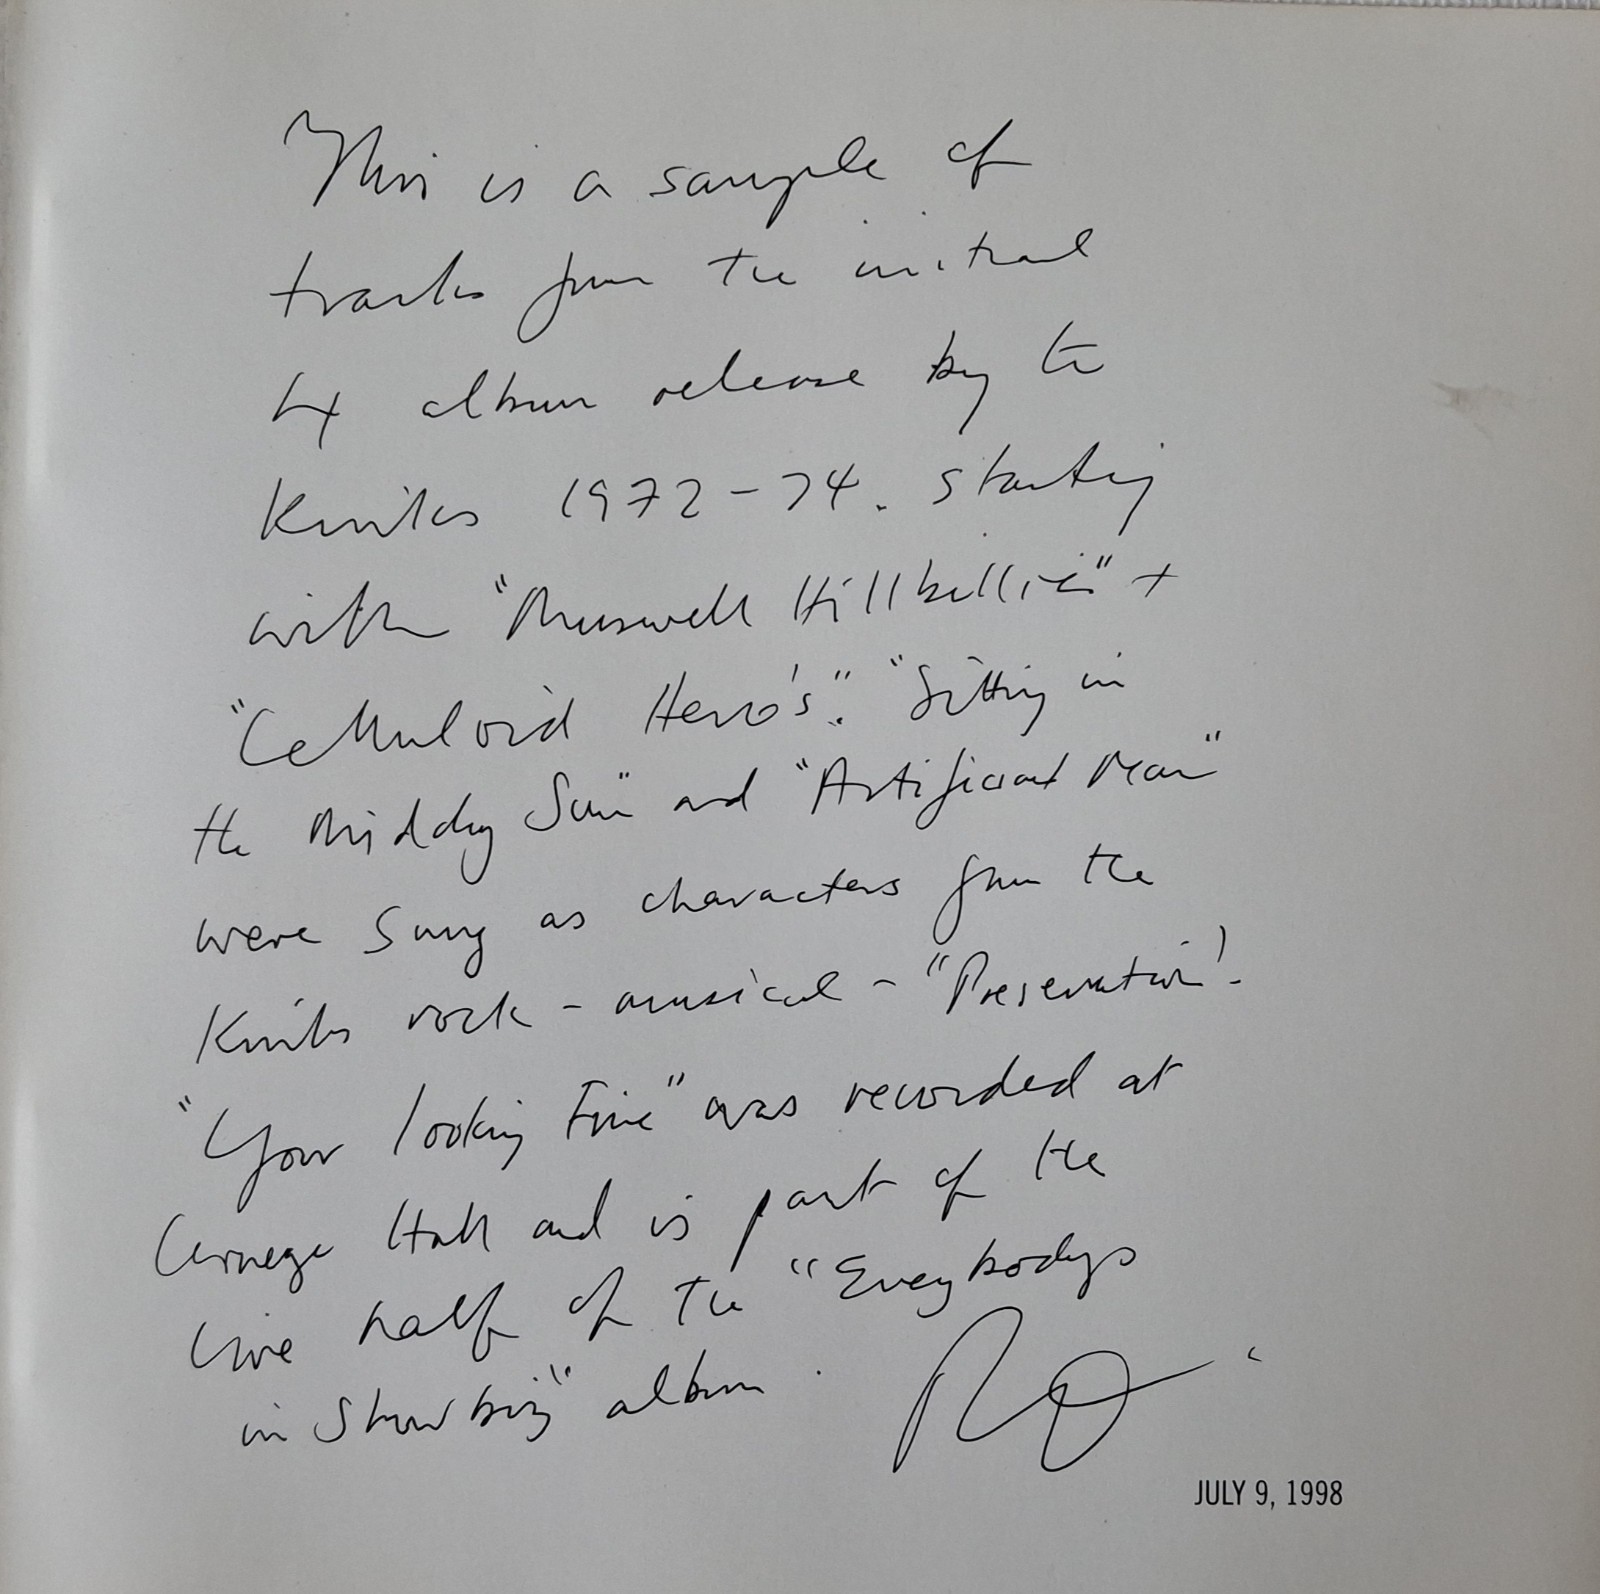 This is a sample of
tracks from the initial
4 album release by the
Kinks 1972-74. starting
with "Muswell Hillbillies" +
"Celluloid Hero's". "Sitting in
the Midday Sun" and "Artificial Man"
were sung as characters from the
Kinks rock-musical - "Preservation'-
"Your looking Fine" was recorded at
Carnege Hall and is part of the
live half of the "Everybodys
in Showbiz" album.
JULY 9, 1998